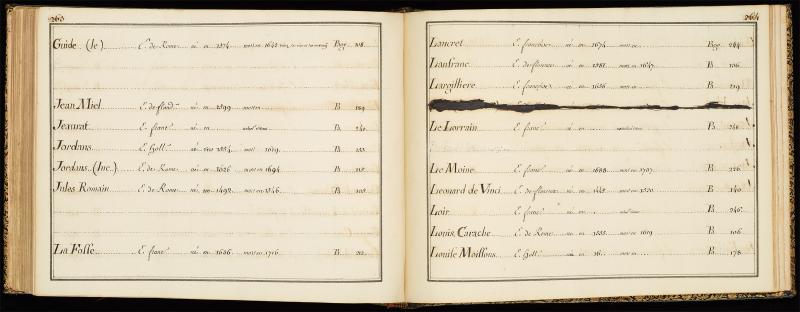 263
Guide (le) E. de Rome né en 1574 mort en 1642 Pag. 
Jean Miel E. de fland. né en 1599 mort en P. 
Jeaurat E. franc. né en P. 
Jordans E. holl. né mort P. 
Jordans (Luc) E. de Rome né en 1626 mort en 1694 P. 
Jules Romain E. de Rome né en 1492 mort en 1546 P. 
La Fosse E. franc. né en 1636 mort en 1716 P. 
264
Lancret E. françoise né en 1674 mort en Pag. 244
Lanfranc E. de florence né en 1581 mort en 1647 P. 106
Largilliere E. françoise né en 1656 mort en P. 219
Le Lorrain E. franc. né en P. 
Le Moine E. franc. né en 1688 mort en 1737 P. 226
Leonard de Vinci E. de florence né en 1445 mort en 1520 P. 140
Loir E. franc. né en P. 
Louis Carache E. de Rome né en 1555 mort en 1619 P. 106
Louise Moillons E. holl. né en 16 mort en P. 178